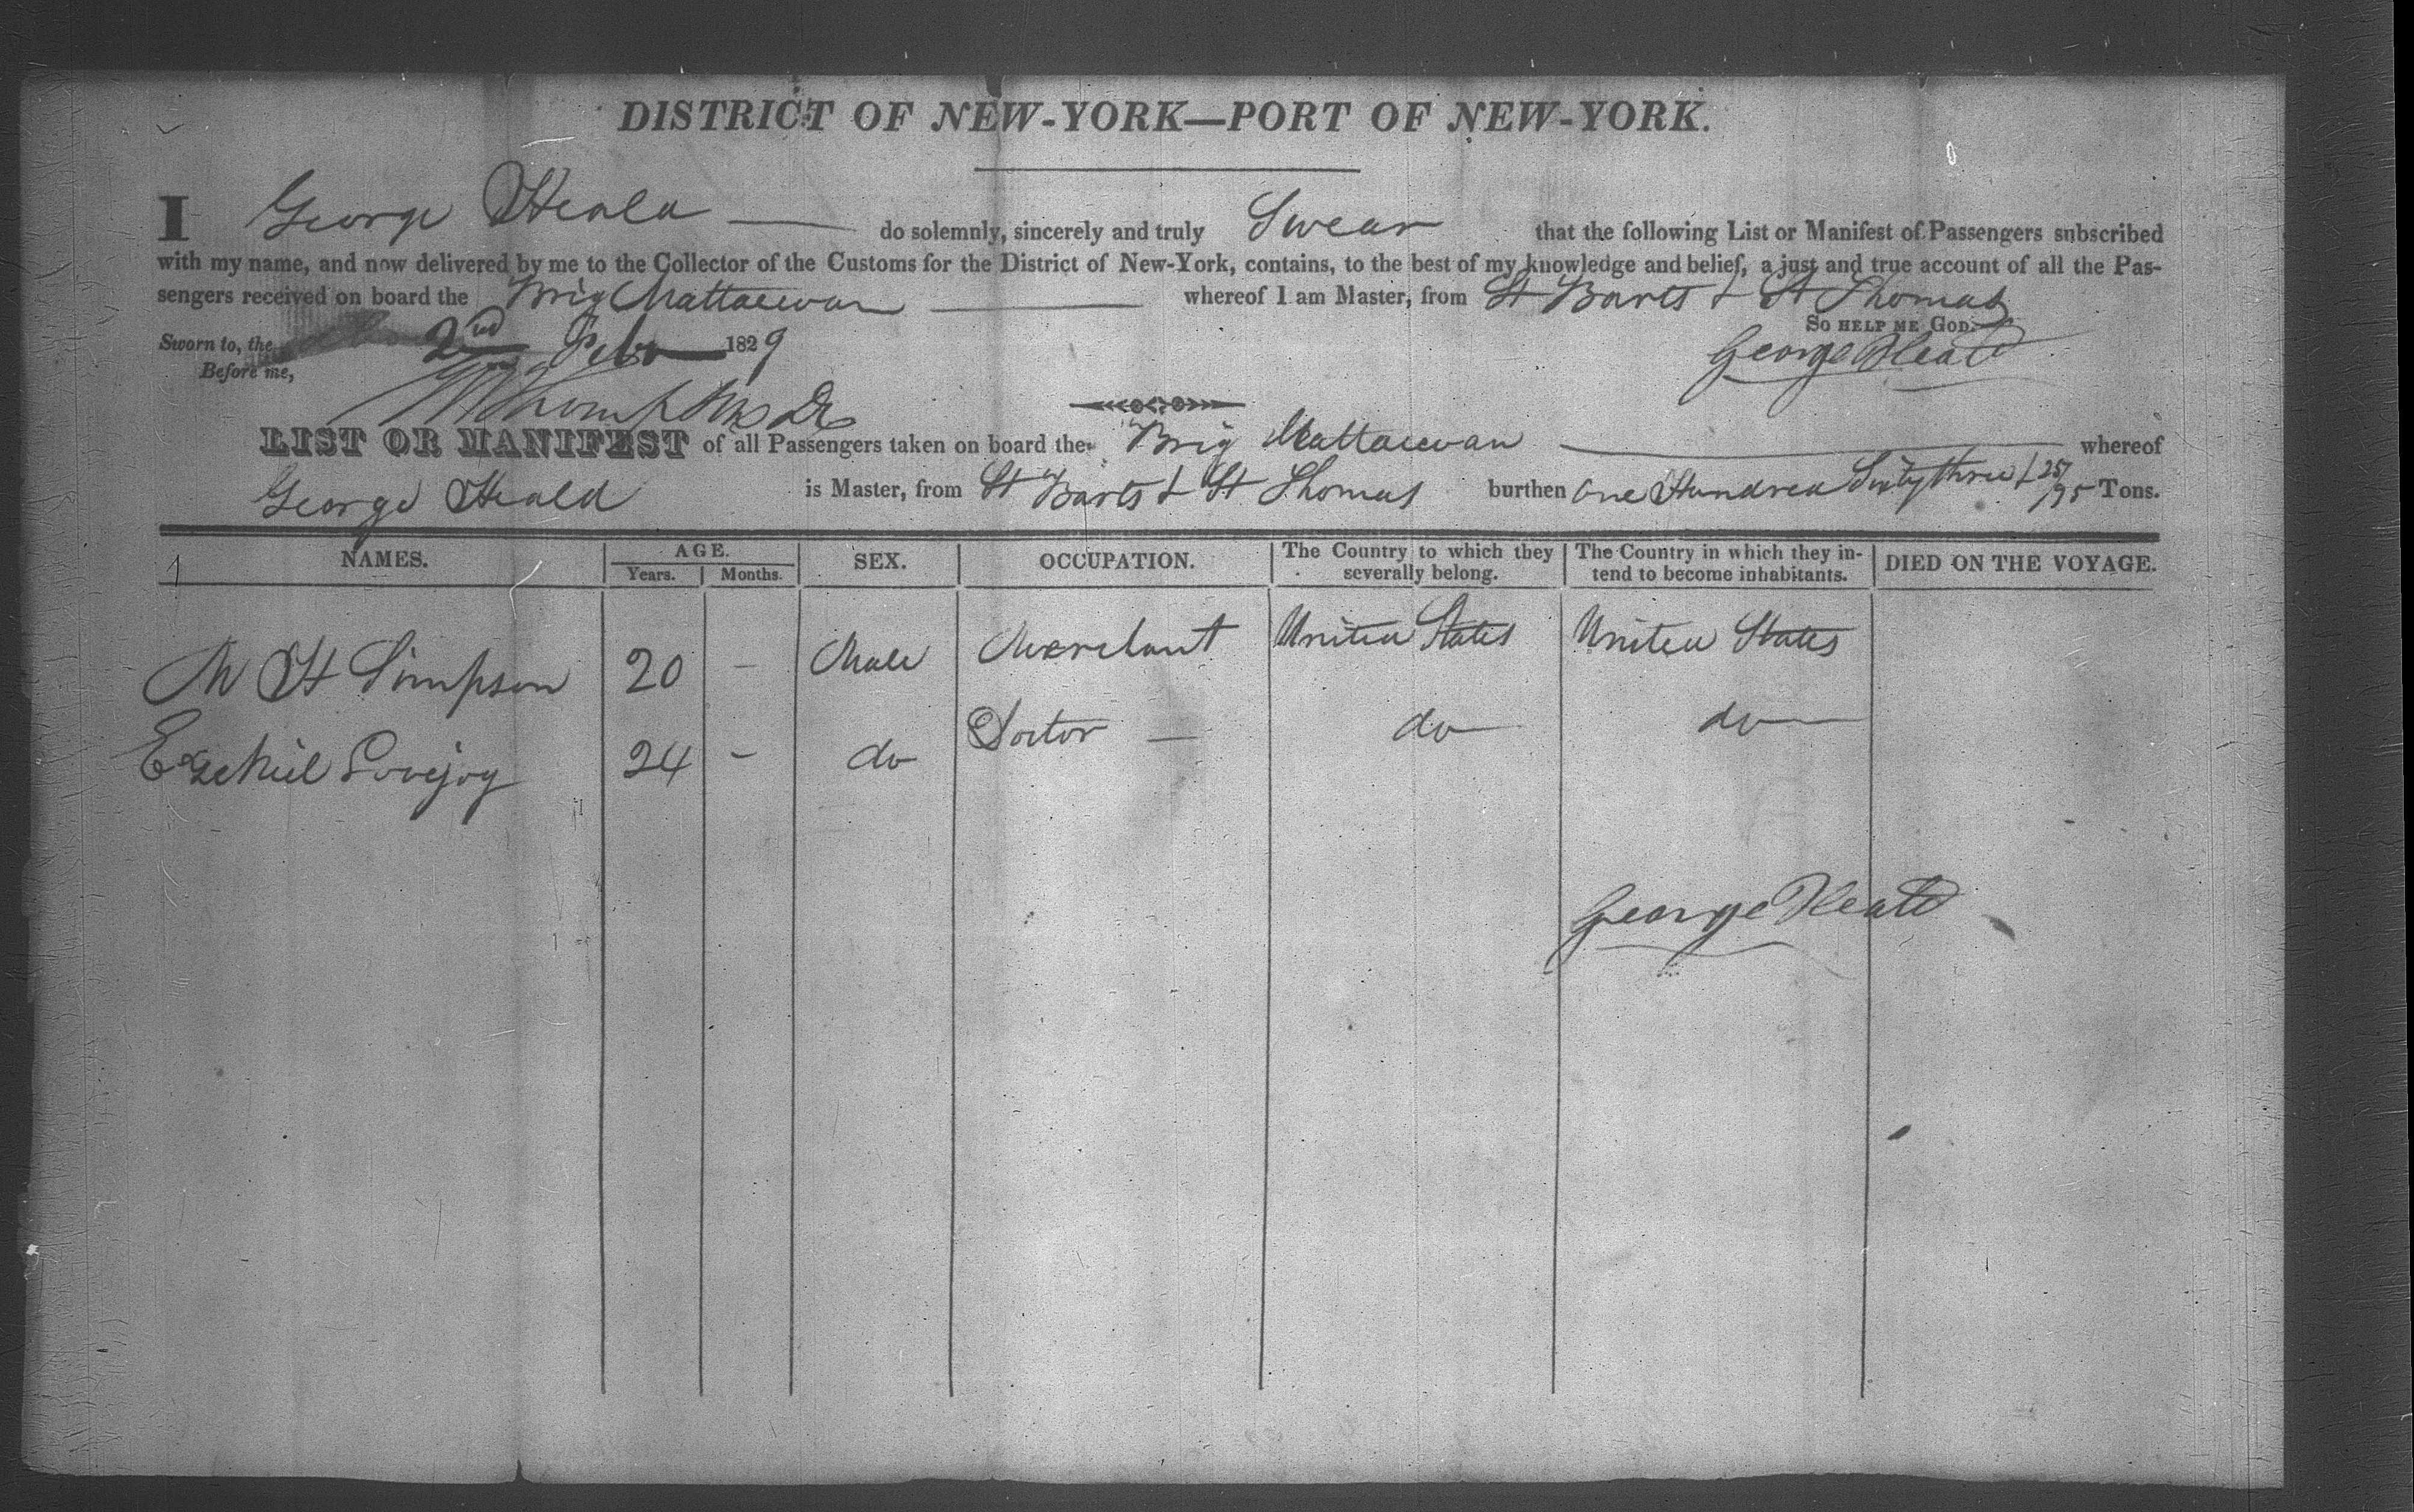 DISTRICT OF NEW-YORK—PORT OF NEW-YORK.
I George Heald do solemnly, sincerely and truly Swear that the following List or Manifest of Passengers subscribed
with my name, and now delivered by me to the Collector of the Customs for the District of New-York, contains, to the best of my knowledge and belief, a just and true account of all the Pas-
sengers received on board the Brig Mattaewan whereof I am Master, from St Barts & St Thomas
So HELP ME GOD.
Sworn to, the 2nd Feby 1829
George Heald
Before me,
LIST OR MANIFEST of all Passengers taken on board the Brig Mattaewan whereof
George Heald is Master, from St Barts & St Thomas burthen One Hundred Sixty three & 25/95 Tons.
NAMES. AGE. Years. Months. SEX. OCCUPATION. The Country to which they severally belong. The Country in which they in-tend to become inhabitants. DIED ON THE VOYAGE.
M H Simpson 20 - Male Merchant United States United States
Ezekiel Lovejoy 24 - do Doctor — do do
George Heald